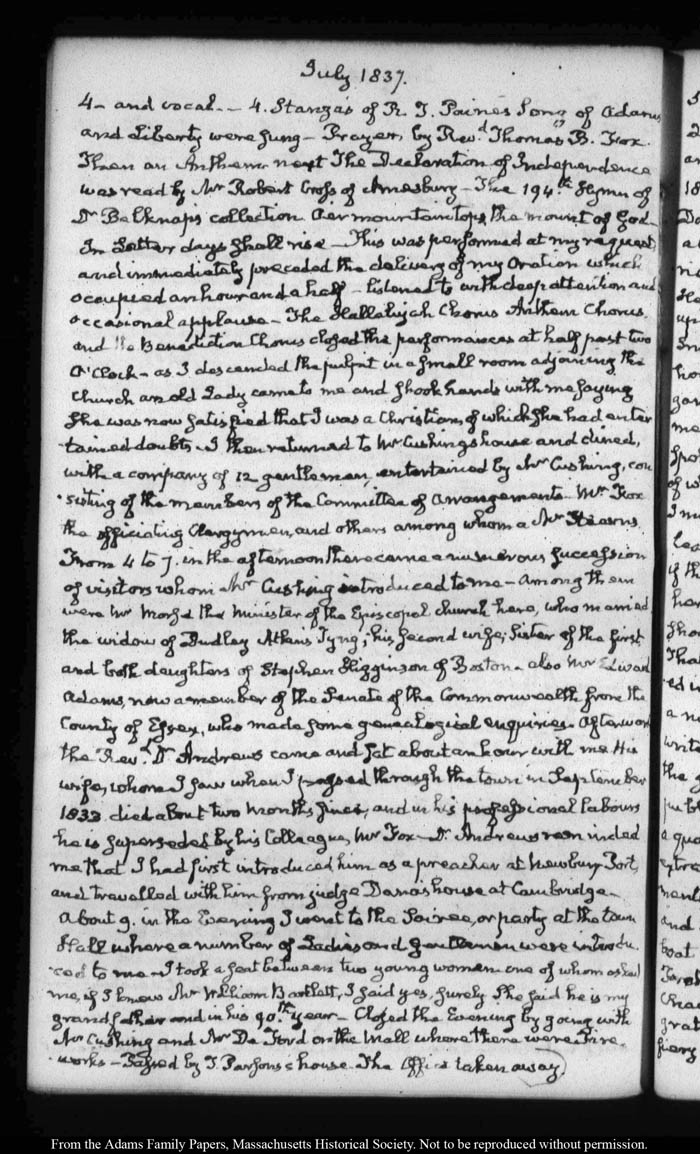 July 1837.
4– and vocal. – 4. Stanzas of R. T. Paine's Song of Adams
and Liberty were sung – Prayer, by Rev.d Thomas B. Fox.
Then an Anthem next The Declaration of Independence
was read by Mr Robert Cross of Amesbury – The 194.th Hymn of
Dr Belknap's collection Oer mountain tops, the mount of God
In Latter days shall rise – This was performed at my request,
and immediately preceded the delivery of my Oration which
occupied an hour and a half – listened to with deep attention and
occasional applause – The Hallelujah Chorus Anthem Chorus.
and the Benediction Chorus closed the performances at half past two
O'Clock – as I descended the pulpit in a small room adjoining the
Church an old Lady came to me and shook hands with me saying
She was now satisfied that I was a Christian, of which She had enter
-tained doubts – I then returned to Mr Cushing's house and dined,
with a company of 12 gentlemen, entertained by Mr Cushing, con
-sisting of the members of the Committee of arrangements Mr Fox
the officiating Clergymen, and others among whom a Mr Stearns.
From 4 to 7. in the afternoon there came a numerous succession
of visitors whom Mr Cushing introduced to me – Among them
were Mr Morss the Minister of the Episcopal church here, who married
the widow of Dudley Atkins Tyng; his second wife; Sister of the first
and both daughters of Stephen Higginson of Boston – also Mr Edward
Adams, now a member of the Senate of the Commonwealth from the
County of Essex, who made some genealogical enquiries. Afterwar
the Rev.d Dr Andrews came and sat about an hour with me His
wife, whom I saw when I passed through the town in September
1833 died about two months since, and in his professional labours
he is superseded by his Colleague, Mr Fox – Dr Andrews reminded
me that I had first introduced him as a preacher at Newbury Port,
and travelled with him from judge Dana's house at Cambridge –
About 9. in the Evening I went to the Soiree, or party at the town
Hall where a number of Ladies and gentlemen were introdu-
-ced to me – I took a seat between two young women one of whom asked
me, if I knew Mr William Bartlett, I said yes, surely She said he is my
grandfather and in his 90.th year – Closed the Evening by going with
Mr Cushing and Mr De Ford on the Mall where there were Fire-
-works – Passed by T. Parsons's house The Office taken away
From the Adams Family Papers, Massachusetts Historical Society. Not to be reproduced without permission.